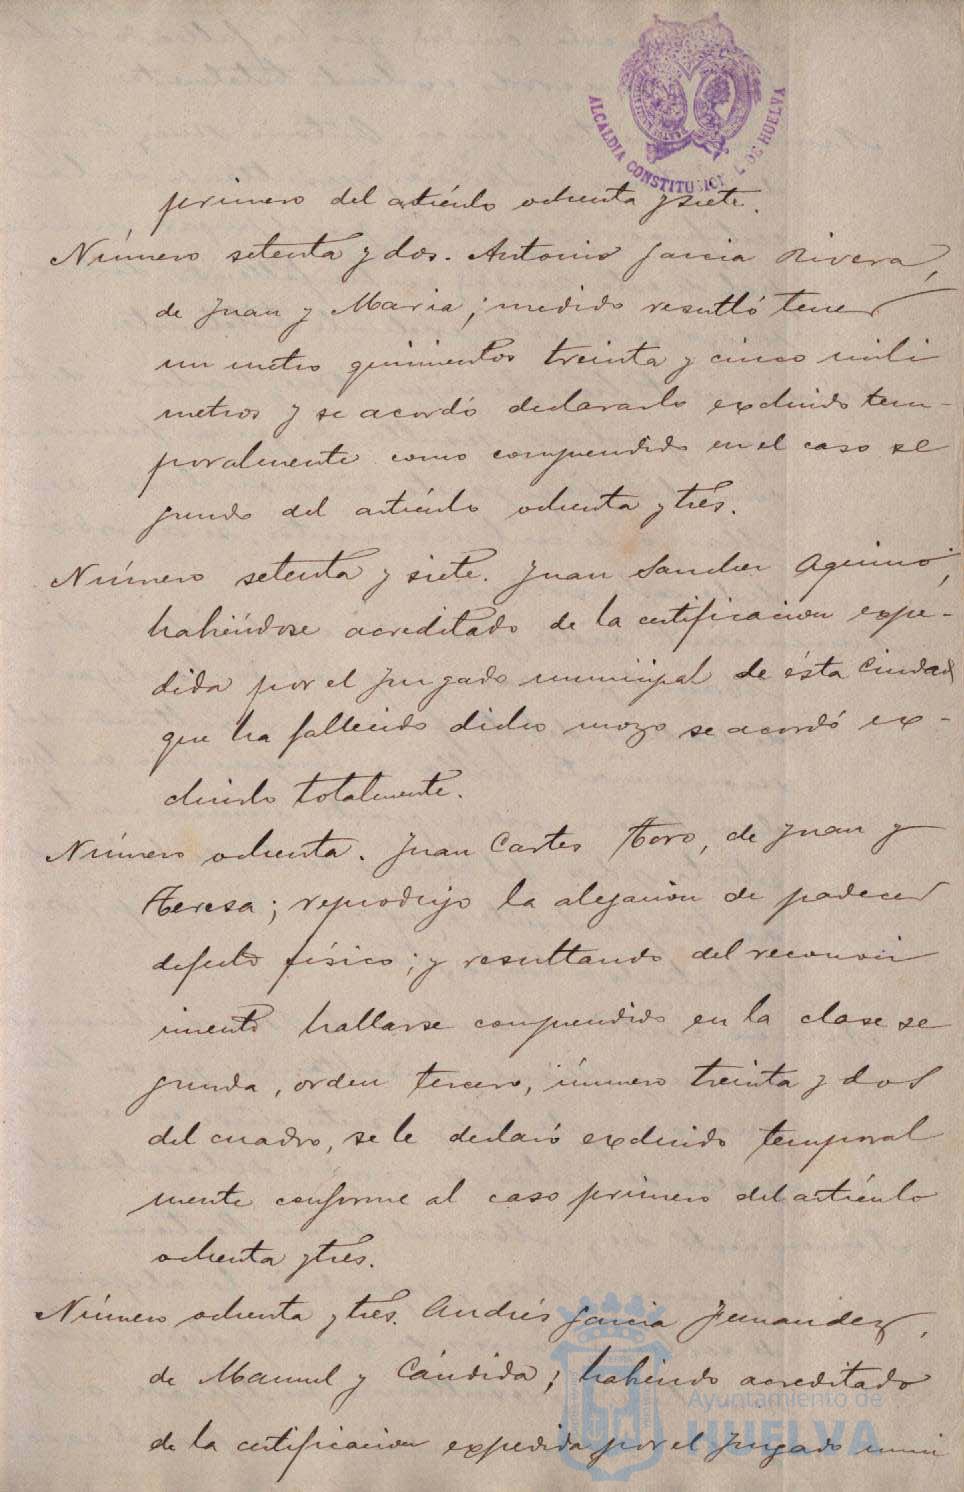 ALCALDIA CONSTITUCIONAL DE HUELVA
primero del artículo ochenta y siete.
Número setenta y dos. Antonio Garcia Rivera,
de Juan y Maria; medido resultó tener
un metro quinientos treinta y cinco mili
metros y se acordó declararlo excluido tem-
poralmente como comprendido en el caso se
gundo del artículo ochenta y tres.
Número setenta y siete. Juan Sanchez Aquino,
habiéndose acreditado de la certificacion expe-
dida por el Juzgado municipal de ésta Ciudad
que ha fallecido dicho mozo se acordó ex-
cluirlo totalmente.
Número ochenta. Juan Cartes Toro, de Juan y
Teresa; reprodujo la alegacion de padecer
defecto físico; y resultando del reconoci
miento hallarse comprendido en la clase se
gunda, orden tercero, número treinta y dos
del cuadro, se le declaró excluido temporal
mente conforme al caso primero del artículo
ochenta y tres.
Número ochenta y tres. Andrés Garcia Fernandez,
de Manuel y Cándida; habiendo acreditado
de la certificacion expedida por el Juzgado muni
Ayuntamiento de
HUELVA